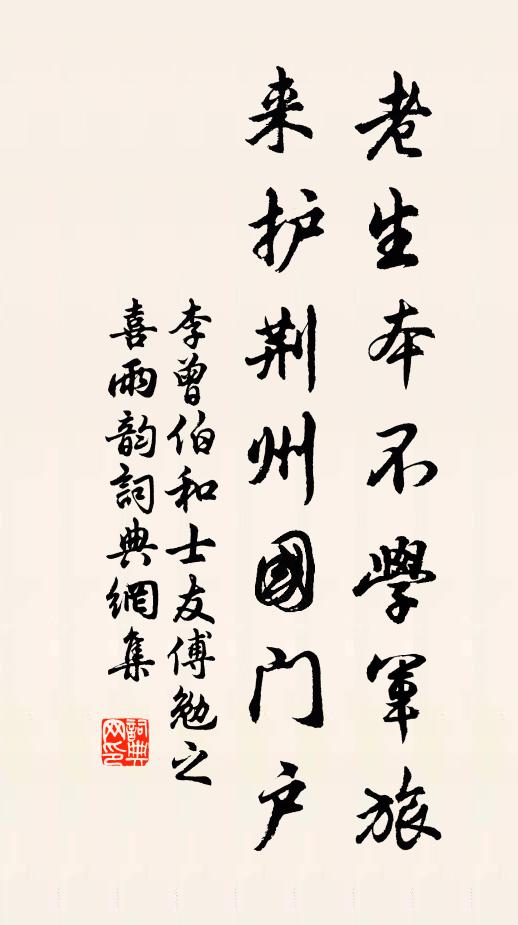 老生本不學軍旅
来护荆州國门户
李曾伯和士友傅勉之
喜雨韵詞典網集
詞典網印